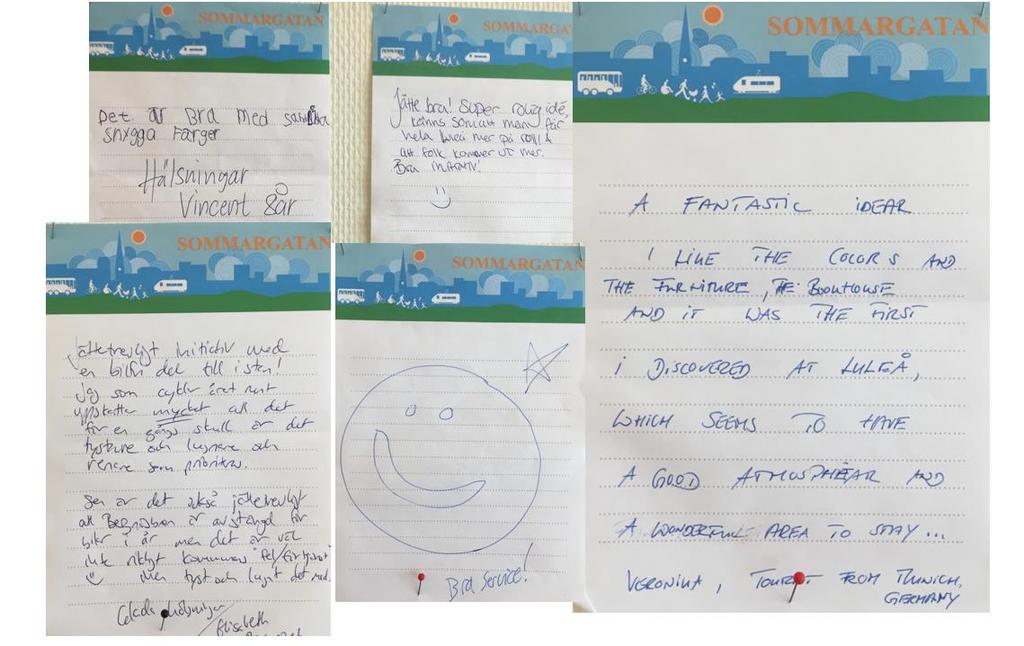 SOMMARGATAN
Det är Bra med sånna
snygga Färger
Hälsningar
Vincent 8år
SOMMARGATA
Jätte bra! Super rolig idé,
känns som att man får
hela Luleå mer på
att folk kommer ut mer.
Bra initiativ!
SOMMARGATAN
A FANTASTIC IDEAR
I LIKE THE COLORS AND
THE FURNITURE, THE BOOKHOUSE
AND IT WAS THE FIRST
I DISCOVERED AT LULEÅ,
WHICH SEEMS TO HAVE
A GOOD ATMOSPHÄAR AND
A WONDERFUL AREA TO STAY...
VERONIKA, TOURIST FROM MUNICH,
GERMANY
SOMMARGATAN
Jättetrevligt initiativ med
en bilfri del till i stan!
Jag som cyklar året runt
uppskattar mycket att det
för en gångs skull är det
tystare och lugnare och
renare som prioriteras.
Sen är det också jättetrevligt
att är avstängd för
bilar i år men det är väl
inte riktigt kommunens
Men tyst och lugnt det med.
Glada hälsningar
/Elisabeth
SOMMARGATAN
Bra service!